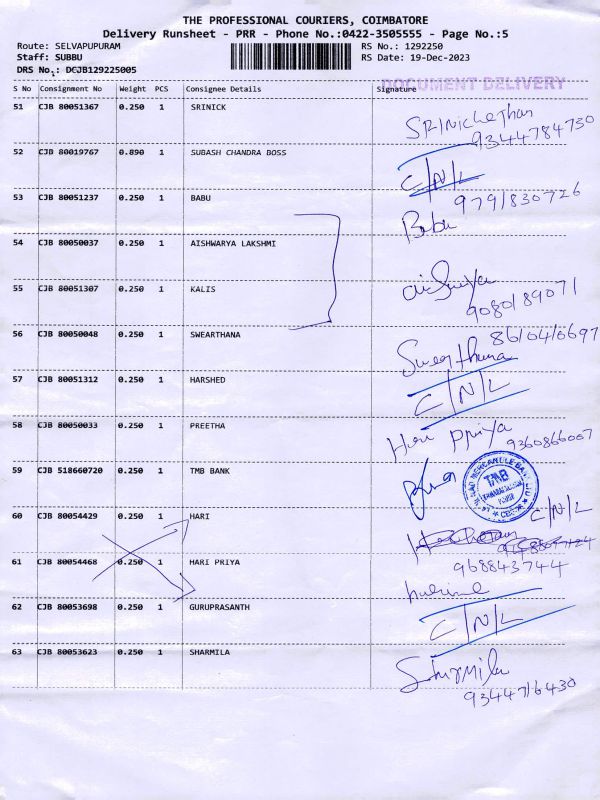 THE PROFESSIONAL COURIERS, COIMBATORE
Delivery Runsheet - PRR - Phone No.:0422-3505555 - Page No.:5
Route: SELVAPUPURAM RS No.: 1292250
Staff: SUBBU RS Date: 19-Dec-2023
DRS No.: DCJB129225005 DOCUMENT DELIVERY
S No Consignment No Weight PCS Consignee Details Signature
51 CJB 80051367 0.250 1 SRINICK
9344784730
52 CJB 80019767 0.890 1 SUBASH CHANDRA BOSS C/N/L
53 CJB 80051237 0.250 1 BABU 9791830726
Babu
54 CJB 80050037 0.250 1 AISHWARYA LAKSHMI
55 CJB 80051307 0.250 1 KALIS
9080189071
56 CJB 80050048 0.250 1 SWEARTHANA 8610410697
Swearthana
57 CJB 80051312 0.250 1 HARSHED C/N/L
58 CJB 80050033 0.250 1 PREETHA 9360866007
59 CJB 518660720 0.250 1 TMB BANK TMB
60 CJB 80054429 0.250 1 HARI C/N/L
61 CJB 80054468 0.250 1 HARI PRIYA 968843744
62 CJB 80053698 0.250 1 GURUPRASANTH C/N/L
63 CJB 80053623 0.250 1 SHARMILA Sharmila
9344716430